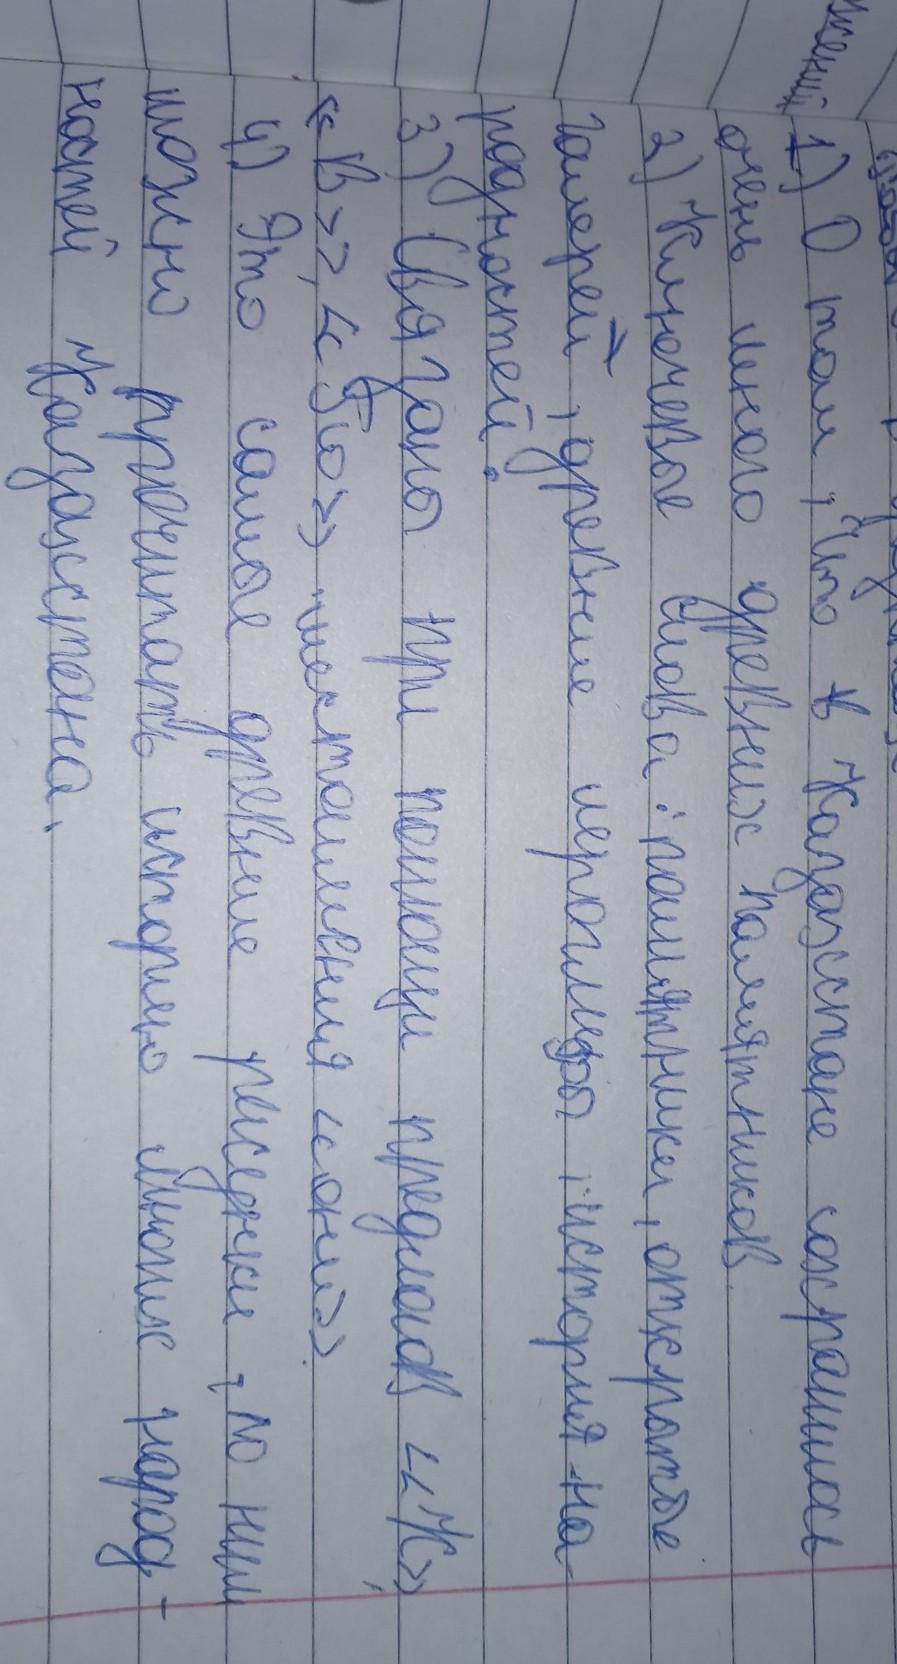 жений
1) О том, что в Казахстане сохранилось
очень много древних памятников.
2) Ключевые слова: памятники, открытые
галереи, древние иероглифы, история на-
родностей.
3) Связаны при помощи предлогов «К»,
«В», «По» местоимения «они».
4) Это самые древние рисунки, по ним
можно прочитать историю многих народ-
ностей Казахстана.